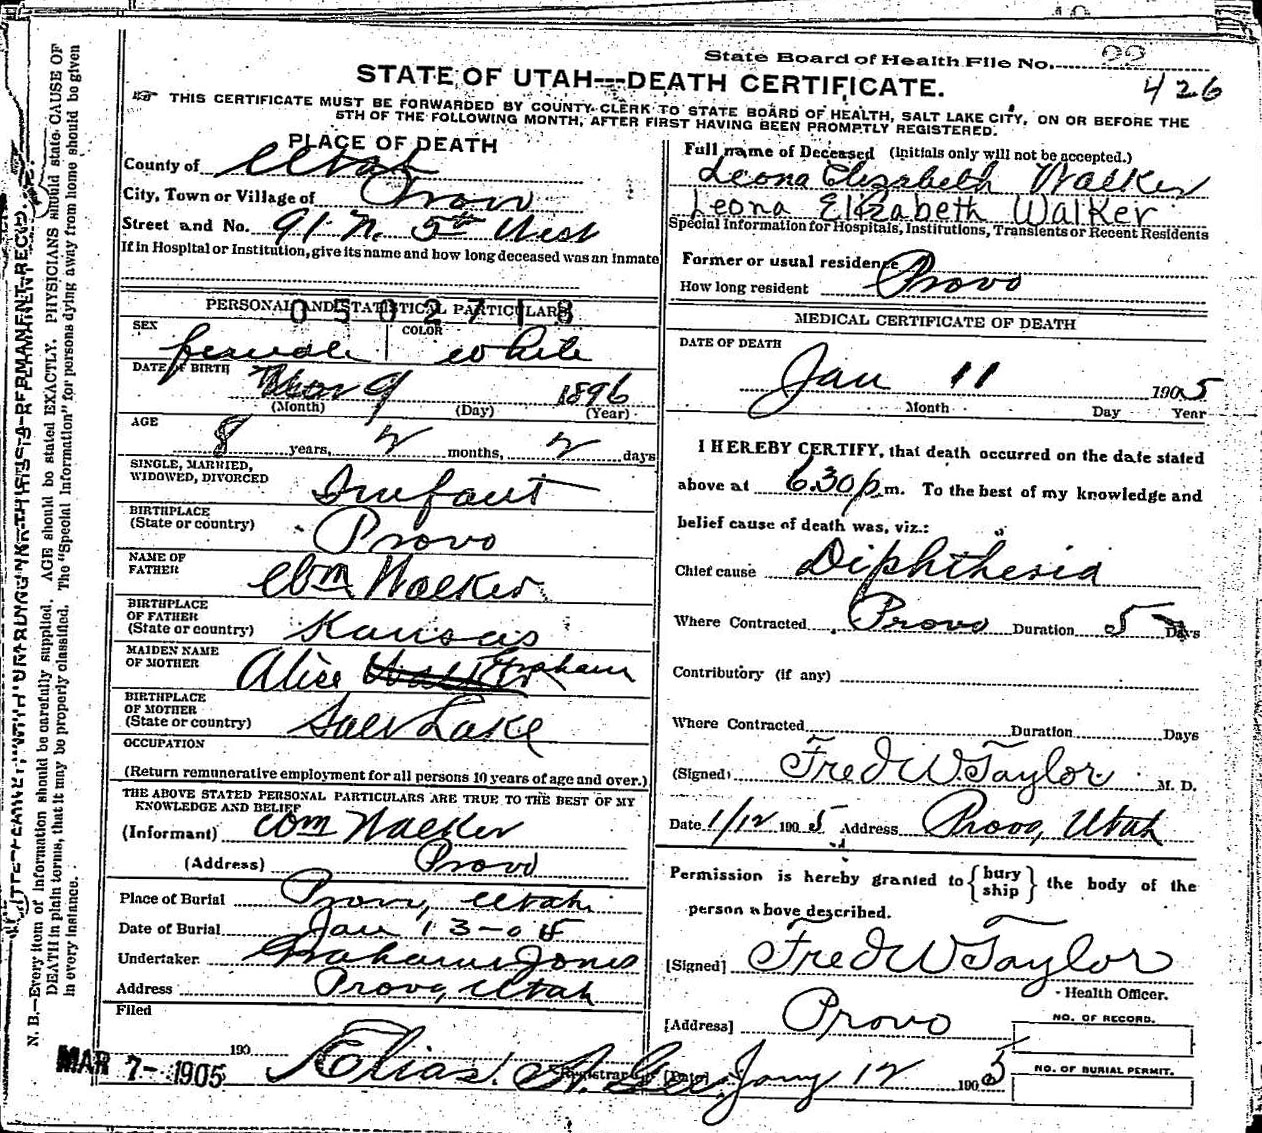 State Board of Health File No. 22
426
STATE OF UTAH---DEATH CERTIFICATE.
THIS CERTIFICATE MUST BE FORWARDED BY COUNTY CLERK TO STATE BOARD OF HEALTH, SALT LAKE CITY, ON OR BEFORE THE
5TH OF THE FOLLOWING MONTH, AFTER FIRST HAVING BEEN PROMPTLY REGISTERED.
PLACE OF DEATH
County of Utah
City, Town or Village of Provo
Street and No. 91. N. 5th West
If in Hospital or Institution, give its name and how long deceased was an Inmate
PERSONAL AND STATISTICAL PARTICULARS
0502718
SEX female COLOR white
DATE OF BIRTH Nov 9 1896
(Month) (Day) (Year)
AGE 8 years, 2 months, 2 days
SINGLE, MARRIED,
WIDOWED, DIVORCED Infant
BIRTHPLACE
(State or country) Provo
NAME OF
FATHER Wm Walker
BIRTHPLACE
OF FATHER
(State or country) Kansas
MAIDEN NAME
OF MOTHER Alice Graham
BIRTHPLACE
OF MOTHER
(State or country) Salt Lake
OCCUPATION
(Return remunerative employment for all persons 10 years of age and over.)
THE ABOVE STATED PERSONAL PARTICULARS ARE TRUE TO THE BEST OF MY
KNOWLEDGE AND BELIEF
(Informant) Wm Walker
(Address) Provo
Place of Burial Provo, Utah
Date of Burial Jan 13-05
Undertaker Graham Jones
Address Provo, Utah
Filed
190
MAR 7- 1905
Elias A. Gee
Registrar
Full name of Deceased (Initials only will not be accepted.)
Leona Elizabeth Walker
Leona Elizabeth Walker
Special Information for Hospitals, Institutions, Transients or Recent Residents
Former or usual residence Provo
How long resident
MEDICAL CERTIFICATE OF DEATH
DATE OF DEATH
Jan 11 1905
Month Day Year
I HEREBY CERTIFY, that death occurred on the date stated
above at 6.30 p.m. To the best of my knowledge and
belief cause of death was, viz.:
Chief cause Diphtheria
Where Contracted Provo Duration 5 Days
Contributory (if any)
Where Contracted Duration Days
(Signed) Fred W. Taylor M. D.
Date 1/12 1905 Address Provo, Utah
Permission is hereby granted to {bury ship} the body of the
person above described.
[Signed] Fred W Taylor
Health Officer.
[Address] Provo
[Date] Jany 12 1905
NO. OF RECORD.
NO. OF BURIAL PERMIT.
N. B.—Every item of information should be carefully supplied. AGE should be stated EXACTLY. PHYSICIANS should state CAUSE OF
DEATH in plain terms, that it may be properly classified. The "Special Information" for persons dying away from home should be given
in every instance.